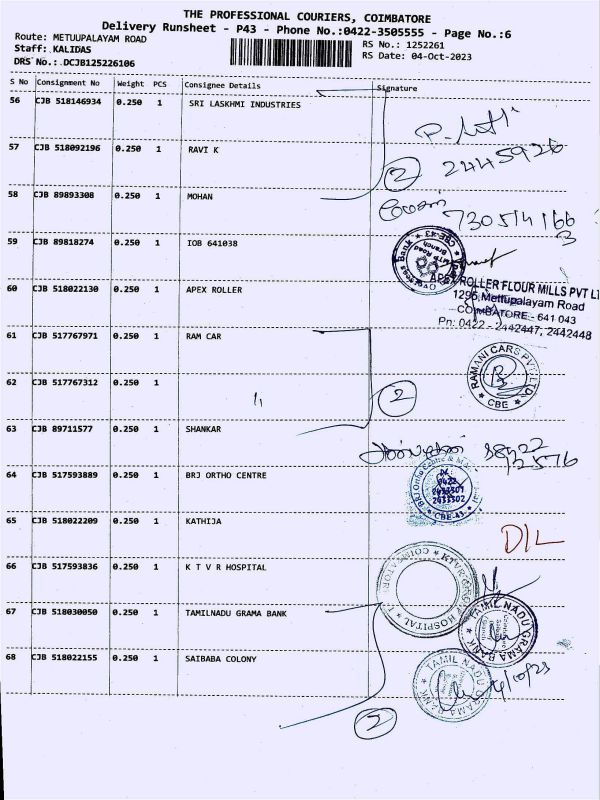 THE PROFESSIONAL COURIERS, COIMBATORE
Delivery Runsheet - P43 - Phone No.:0422-3505555 - Page No.:6
Route: METUUPALAYAM ROAD
RS No.: 1252261
Staff: KALIDAS
RS Date: 04-Oct-2023
DRS No.: DCJB125226106
S No Consignment No Weight PCS Consignee Details Signature
56 CJB 518146934 0.250 1 SRI LASKHMI INDUSTRIES
57 CJB 518092196 0.250 1 RAVI K
2
2445926
58 CJB 89893308 0.250 1 MOHAN
59 CJB 89818274 0.250 1 IOB 641038
CBE-43
MTP Road
Branch
60 CJB 518022130 0.250 1 APEX ROLLER
APEX ROLLER FLOUR MILLS PVT LT
1295, Mettupalayam Road
COIMBATORE - 641 043
Pn: 0422 - 2442447, 2442448
61 CJB 517767971 0.250 1 RAM CAR
RAMANI CARS PVT LTD
CBE
62 CJB 517767312 0.250 1 "
2
63 CJB 89711577 0.250 1 SHANKAR
64 CJB 517593889 0.250 1 BRJ ORTHO CENTRE
0422
2433501
2433502
CBE-43
65 CJB 518022209 0.250 1 KATHIJA
D/L
66 CJB 517593836 0.250 1 K T V R HOSPITAL
KTVR GROUP HOSPITAL
COIMBATORE
67 CJB 518030050 0.250 1 TAMILNADU GRAMA BANK
TAMIL NADU GRAMA BANK
68 CJB 518022155 0.250 1 SAIBABA COLONY
TAMIL NADU GRAMA BANK
2